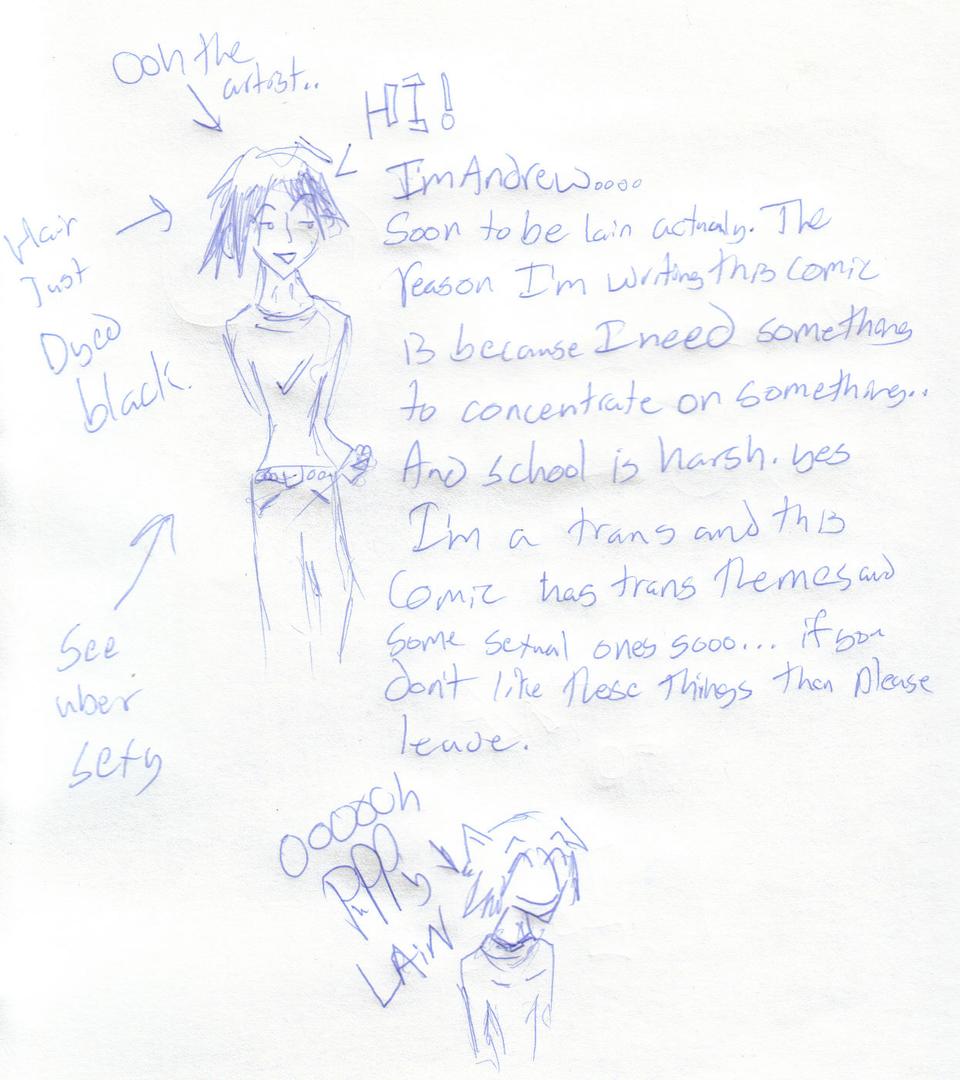 Ooh the
artist..
HI!
I'm Andrew....
Soon to be lain actually. The
reason I'm writing this comic
is because I need something
to concentrate on something..
And school is harsh. yes
I'm a trans and this
Comic has trans themes and
some sexual ones sooo... if you
don't like these things than please
leave.
Hair
Just
Dyed
black.
See
uber
sexy
OOOOOh
PuPPy
LAIN